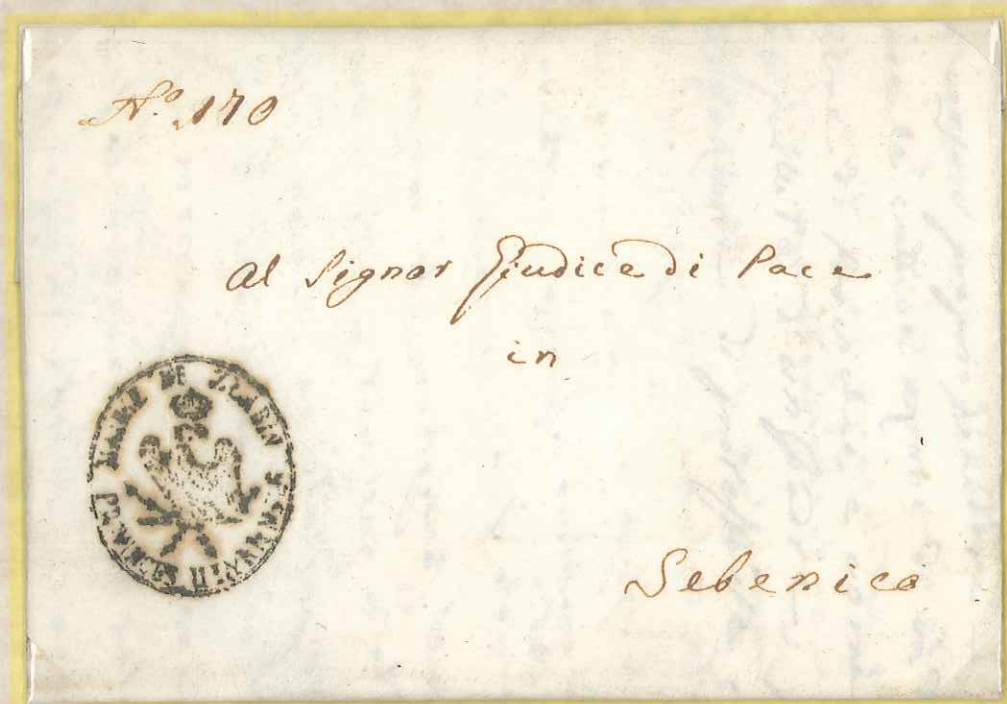 Nº. 170
Al Signor Giudice di Pace
in
Sebenico
MAIRIE DE
PROVINCES ILLYRIENNES